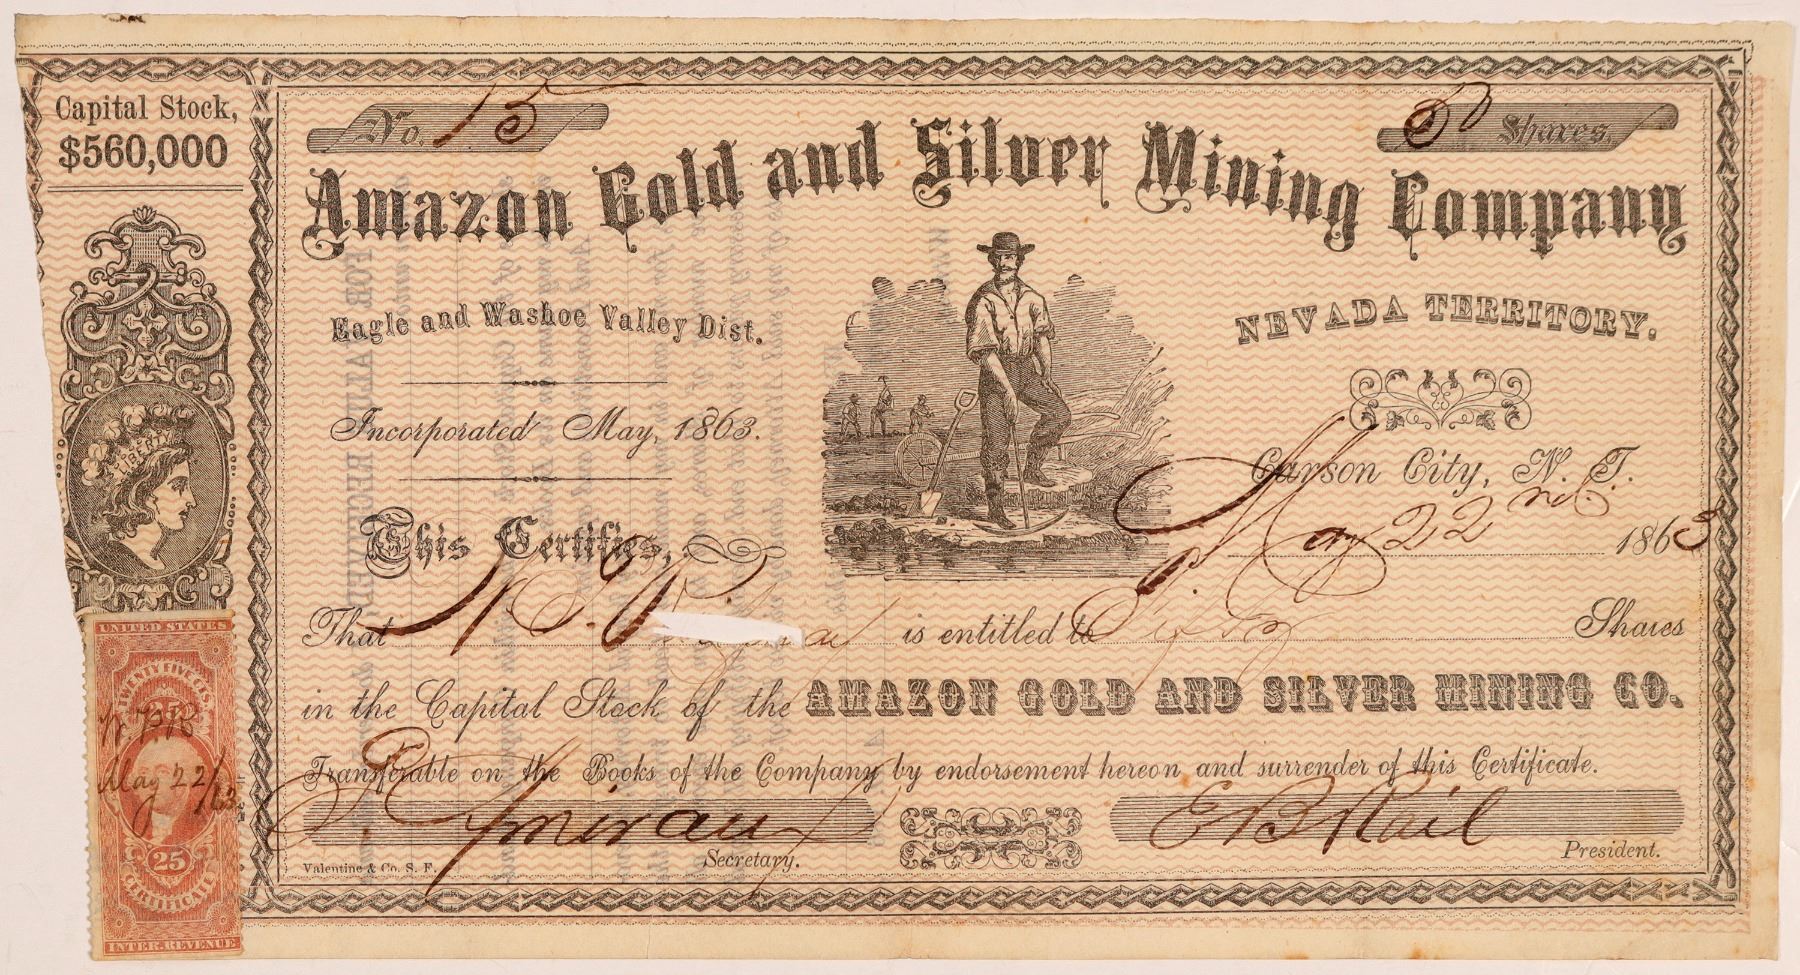 Capital Stock,
$560,000
No. 15
50 Shares.
Amazon Gold and Silver Mining Company
Eagle and Washoe Valley Dist.
NEVADA TERRITORY.
Incorporated May, 1863.
Carson City, N. T.
May 22nd 1863
LIBERTY
This Certifies,
That is entitled to Fifty Shares
in the Capital Stock of the AMAZON GOLD AND SILVER MINING CO.
Transferable on the Books of the Company by endorsement hereon and surrender of this Certificate.
E B Rail
Secretary.
President.
Valentine & Co. S. F.
UNITED STATES
TWENTY FIVE CENTS
25
May 22/63
25
CERTIFICATE
INTER. REVENUE